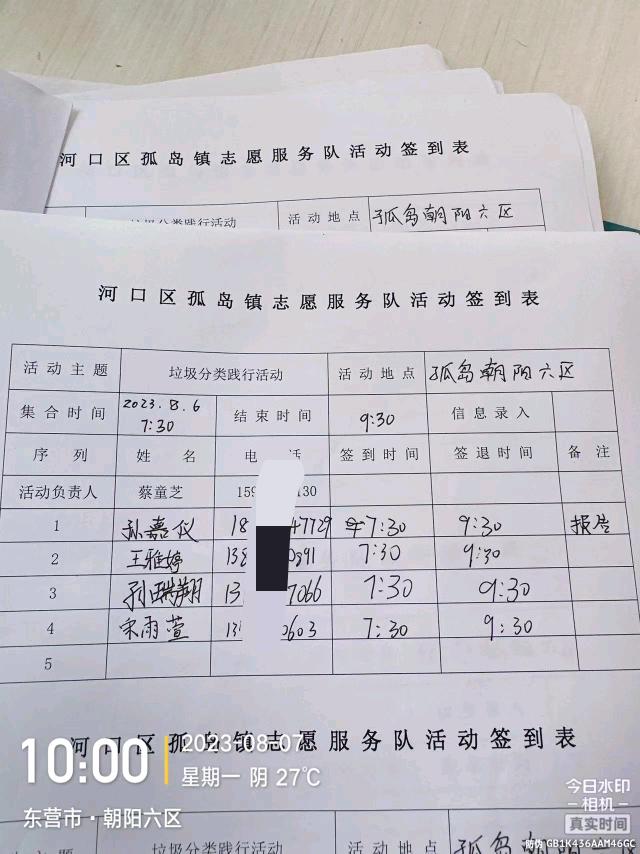 河口区孤岛镇志愿服务队活动签到表
垃圾分类践行活动 活动地点 孤岛朝阳六区
河口区孤岛镇志愿服务队活动签到表
活动主题 垃圾分类践行活动 活动地点 孤岛朝阳六区
集合时间 2023.8.6 7:30 结束时间 9:30 信息录入
序列 姓名 电话 签到时间 签退时间 备注
活动负责人 蔡童芝 159 130
1 孙嘉仪 18 47729 7:30 9:30 报告
2 王雅婷 138 0891 7:30 9:30
3 孙瑞翔 13 7066 7:30 9:30
4 宋雨萱 13 0603 7:30 9:30
5
河口区孤岛镇志愿服务队活动签到表
10:00 2023-08-07
星期一 阴 27℃
东营市·朝阳六区
今日水印
相机
真实时间
防伪 GB1K436AAM46GC
主题 垃圾分类践行活动 活动地点 孤岛朝阳六区